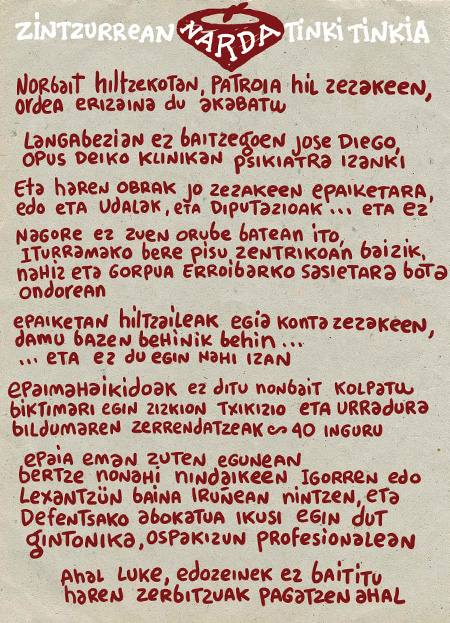 ZINTZURREAN NARDA TINKI TINKIA
Norbait hiltzekotan, patroia hil zezakeen,
ordea erizaina du akabatu
Langabezian ez baitzegoen Jose Diego,
Opus Deiko klinikan psikiatra izanki
Eta haren obrak jo zezakeen epaiketara,
edo eta udalak, eta Diputazioak ... eta ez
Nagore ez zuen orube batean ito,
Iturramako bere pisu zentrikoan baizik,
nahiz eta gorpua Erroibarko sasietara bota
ondorean
Epaiketan hiltzaileak egia konta zezakeen,
damu bazen behinik behin ...
... eta ez du egin nahi izan
Epaimahaikidoak ez ditu nonbait kolpatu
biktimari egin zizkion txikizio eta urradura
bildumaren zerrendatzeak ~ 40 inguru
Epaia eman zuten egunean
bertze nonahi nindaikeen Igorren edo
Lexantzün baina Iruñean nintzen, eta
Defentsako abokatua ikusi egin dut
gintonika, ospakizun profesionalean
Ahal luke, edozeinek ez baititu
haren zerbitzuak pagatzen ahal